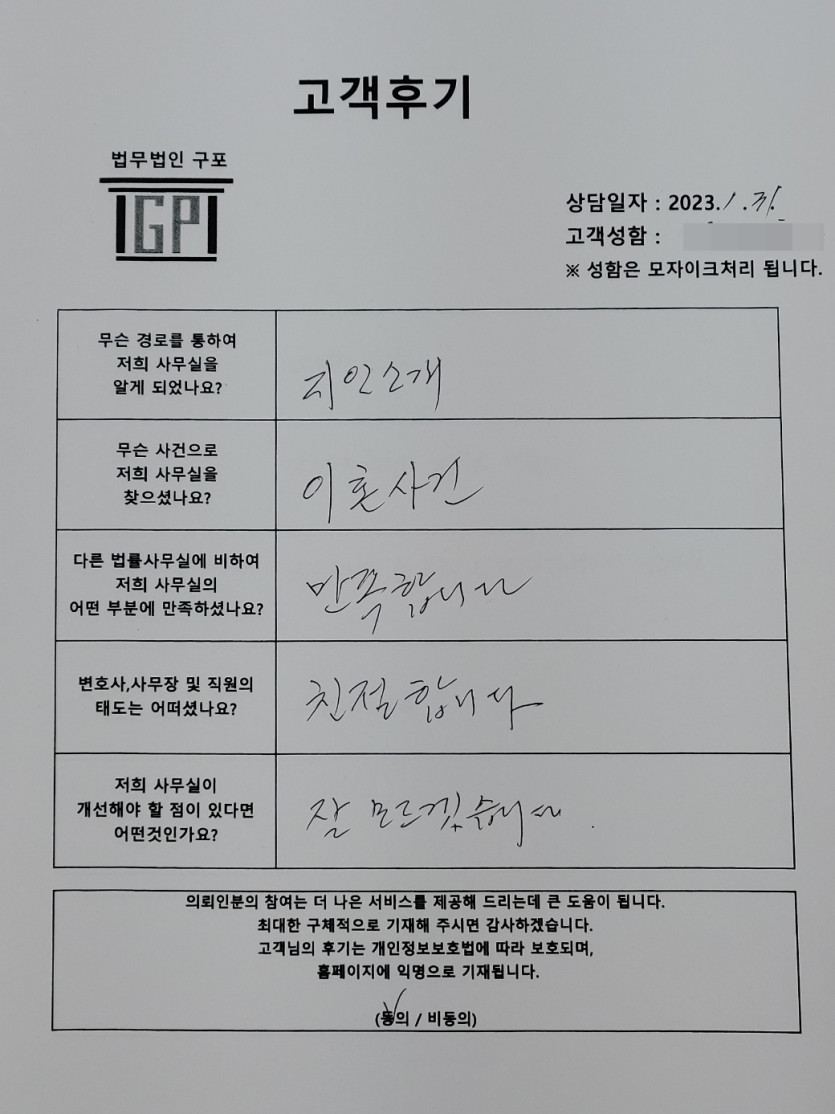 고객후기
법무법인 구포
GP
상담일자 : 2023. 1 . 31.
고객성함 :
※ 성함은 모자이크처리 됩니다.
무슨 경로를 통하여
저희 사무실을
알게 되었나요?
지인소개
무슨 사건으로
저희 사무실을
찾으셨나요?
이혼사건
다른 법률사무실에 비하여
저희 사무실의
어떤 부분에 만족하셨나요?
만족합니다
변호사,사무장 및 직원의
태도는 어떠셨나요?
친절합니다
저희 사무실이
개선해야 할 점이 있다면
어떤것인가요?
잘 모르겠습니다.
의뢰인분의 참여는 더 나은 서비스를 제공해 드리는데 큰 도움이 됩니다.
최대한 구체적으로 기재해 주시면 감사하겠습니다.
고객님의 후기는 개인정보보호법에 따라 보호되며,
홈페이지에 익명으로 기재됩니다.
(동의 / 비동의)